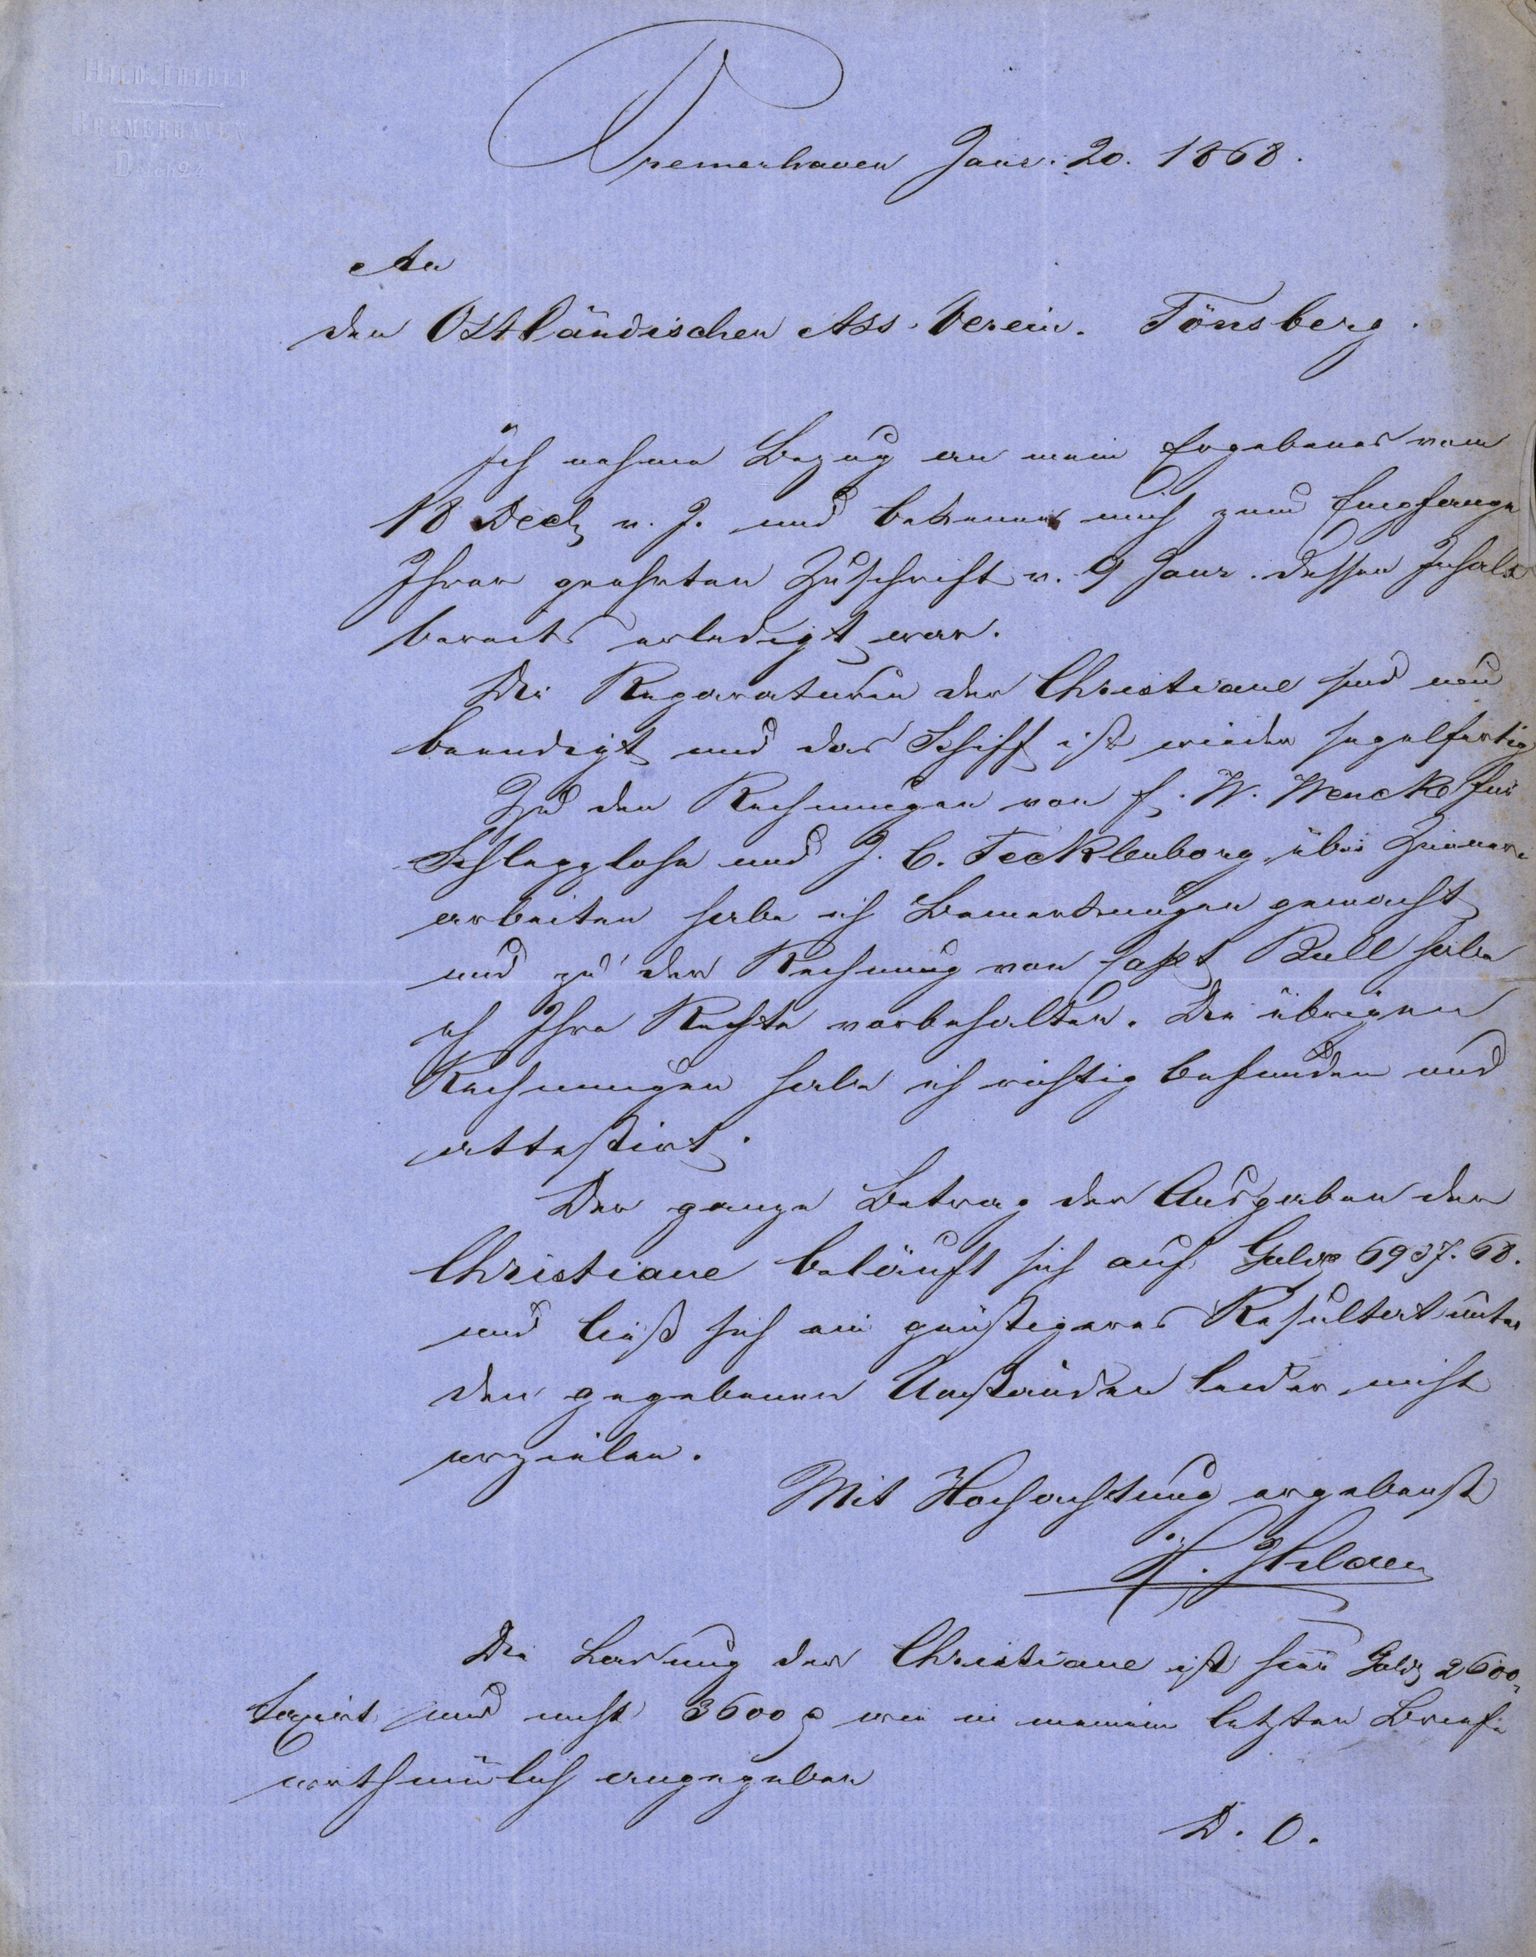 BREMERHAVEN
Bremerhaven Janr. 20. 1868.
An
den Ostländischen Ass. Verein. Tönsberg.
Ich nehme Bezug an mein Ergebenes vom
18 Decb v. J. und bekenne mich zum Empfange
Ihrer geehrten Zuschrift v. 9 Janr. dessen Inhalt
bereits erledigt war.
Die Reparaturen der Christiane sind nun
beendigt und das Schiff ist wieder segelfertig
Zu den Rechnungen von F. W. Wencke für
Schlepplohn und J. C. Tecklenborg über Zimmer
arbeiten habe ich Bemerkungen gemacht
und zu der Rechnung von Capt Bull habe
ich Ihre Rechte vorbehalten. Die übrigen
Rechnungen habe ich richtig befunden und
attestirt.
Der ganze Betrag der Ausgaben der
Christiane beläuft sich auf Gold 6937. 68.
und ließ sich ein günstigeres Resultat unter
den gegebenen Umständen leider nicht
erzielen.
Mit Hochachtung ergebenst
H. Ihlder
Die Ladung der Christiane ist hier Gold 2600
taxirt und nicht 3600 wie in meinem letzten Briefe
irrthümlich angegeben
D. O.